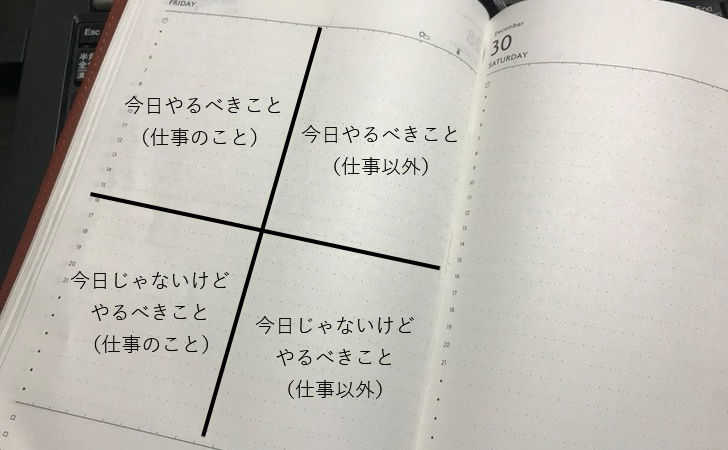 FRIDAY
今日やるべきこと
（仕事のこと）
今日やるべきこと
（仕事以外）
今日じゃないけど
やるべきこと
（仕事のこと）
今日じゃないけど
やるべきこと
（仕事以外）
December
30
SATURDAY
Esc
End